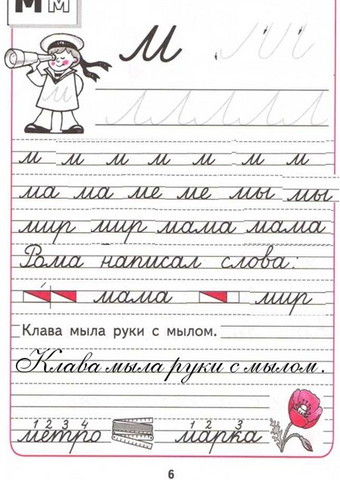 М м
м
м м м м м м м
ма ма ме ме мы мы
мир мир мама мама
Рома написал слова:
мама мир
Клава мыла руки с мылом.
Клава мыла руки с мылом.
1 2 3 4 1 2 3
метро марка
6